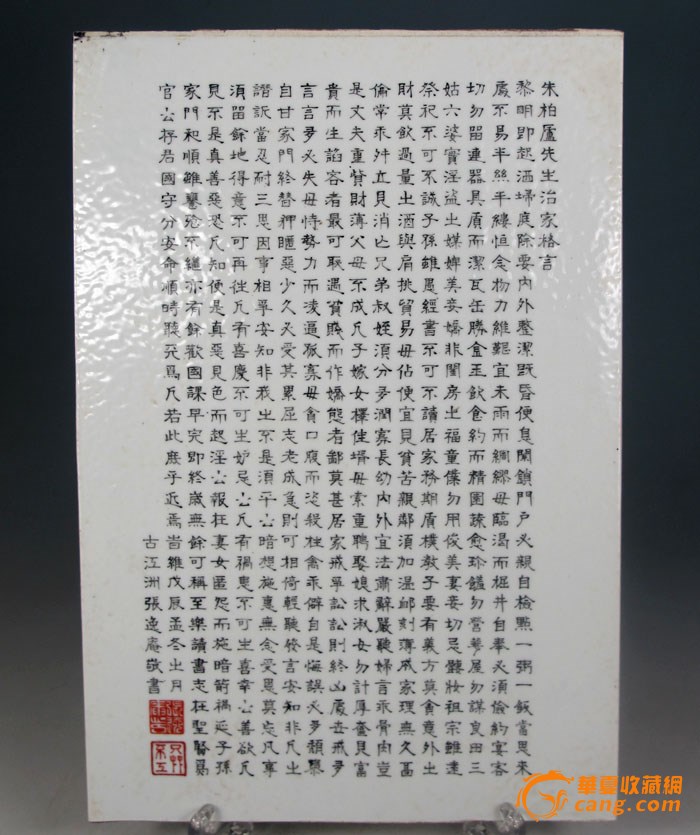 朱柏廬先生治家格言
黎明即起洒埽庭除要內外整潔既昏便息關鎖門戶必親自檢點一粥一飯當思來
處不易半絲半縷恒念物力維艱宜未雨而綢繆毋臨渴而掘井自奉必須儉約宴客
切勿留連器具質而潔瓦缶勝金玉飲食約而精園蔬愈珍饈勿營華屋勿謀良田三
姑六婆實淫盜之媒婢美妾嬌非閨房之福童僕勿用俊美妻妾切忌豔妝祖宗雖遠
祭祀不可不誠子孫雖愚經書不可不讀居家務期質樸教子要有義方莫貪意外之
財莫飲過量之酒與肩挑貿易毋佔便宜見貧苦親鄰須加溫卹刻薄成家理無久享
倫常乖舛立見消亡兄弟叔姪須分多潤寡長幼內外宜法肅辭嚴聽婦言乖骨肉豈
是丈夫重貲財薄父母不成人子嫁女擇佳壻毋索重聘娶媳求淑女勿計厚奩見富
貴而生諂容者最可恥遇貧賤而作驕態者鄙莫甚居家戒爭訟訟則終凶處世戒多
言言多必失毋恃勢力而凌逼孤寡毋貪口腹而恣殺牲禽乖僻自是悔誤必多頹隳
自甘家門終替狎暱惡少久必受其累屈志老成急則可相倚輕聽發言安知非人之
譖訴當忍耐三思因事相爭安知非我之不是須平心暗想施惠無念受恩莫忘凡事
須留餘地得意不可再往人有喜慶不可生妒忌心人有禍患不可生喜幸心善欲人
見不是真善惡恐人知便是真惡見色而起淫心報在妻女匿怨而施暗箭禍延子孫
家門和順雖饔飧不繼亦有餘歡國課早完即終歲無餘可稱至樂讀書志在聖賢爲
官心存君國守分安命順時聽天爲人若此庶乎近焉 旹維戊辰孟冬之月
古江洲張逸庵敬書
華夏收藏網
cang.com